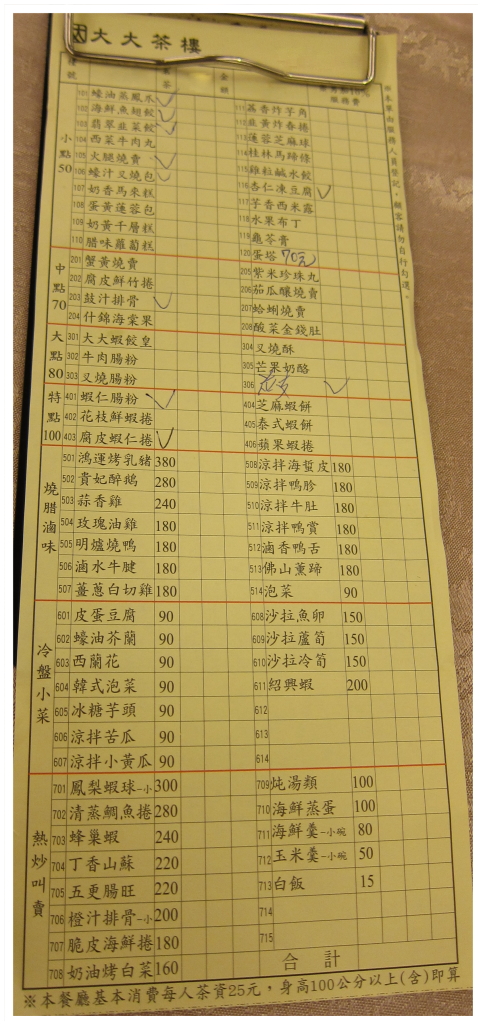 大大茶樓
號
茶
金額
10%
服務費
※本單由服務人員登記，顧客請勿自行勾選。
小點50
101 蠔油蒸鳳爪
102 海鮮魚翅餃
103 翡翠韭菜餃
104 西菜牛肉丸
105 火腿燒賣
106 蠔汁叉燒包
107 奶香馬來糕
108 蛋黃蓮蓉包
109 奶黃千層糕
110 腊味蘿蔔糕
111 荔香炸芋角
112 韭黃炸春捲
113 蓮蓉芝麻球
114 桂林馬蹄條
115 雞粒鹹水餃
116 杏仁凍豆腐
117 芋香西米露
118 水果布丁
119 龜苓膏
120 蛋塔 70元
中點70
201 蟹黃燒賣
202 腐皮鮮竹捲
203 豉汁排骨
204 什錦海棠果
205 紫米珍珠丸
206 茄瓜釀燒賣
207 蛤蜊燒賣
208 酸菜金錢肚
大點80
301 大大蝦餃皇
302 牛肉腸粉
303 叉燒腸粉
304 叉燒酥
305 芒果奶酪
306
特點100
401 蝦仁腸粉
402 花枝鮮蝦捲
403 腐皮蝦仁捲
404 芝麻蝦餅
405 泰式蝦餅
406 蘋果蝦捲
燒腊滷味
501 鴻運烤乳豬 380
502 貴妃醉鵝 280
503 蒜香雞 240
504 玫瑰油雞 180
505 明爐燒鴨 180
506 滷水牛腱 180
507 薑蔥白切雞 180
508 涼拌海蜇皮 180
509 涼拌鴨胗 180
510 涼拌牛肚 180
511 涼拌鴨賞 180
512 滷香鴨舌 180
513 佛山薰蹄 180
514 泡菜 90
冷盤小菜
601 皮蛋豆腐 90
602 蠔油芥蘭 90
603 西蘭花 90
604 韓式泡菜 90
605 冰糖芋頭 90
606 涼拌苦瓜 90
607 涼拌小黃瓜 90
608 沙拉魚卵 150
609 沙拉蘆筍 150
610 沙拉冷筍 150
611 紹興蝦 200
612
613
614
熱炒叫賣
701 鳳梨蝦球-小 300
702 清蒸鯛魚捲 280
703 蜂巢蝦 240
704 丁香山蘇 220
705 五更腸旺 220
706 橙汁排骨-小 200
707 脆皮海鮮捲 180
708 奶油烤白菜 160
709 炖湯類 100
710 海鮮蒸蛋 100
711 海鮮羹-小碗 80
712 玉米羹-小碗 50
713 白飯 15
714
715
合 計
※本餐廳基本消費每人茶資25元，身高100公分以上(含)即算